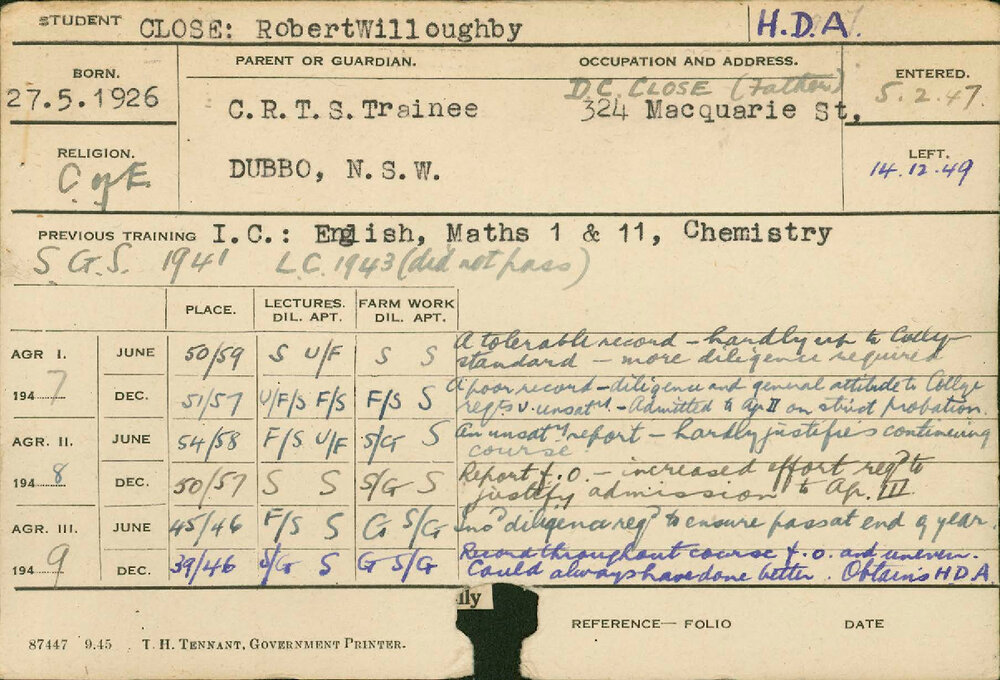 STUDENT CLOSE: RobertWilloughby H.D.A.
BORN. PARENT OR GUARDIAN. OCCUPATION AND ADDRESS. ENTERED.
D.C. CLOSE (Father)
27.5.1926 C.R.T.S.Trainee 324 Macquarie St, 5.2.47.
RELIGION. LEFT.
C of E. DUBBO, N.S.W. 14.12.49
PREVIOUS TRAINING I.C.: English, Maths 1 & 11, Chemistry
S G.S. 1941 L.C. 1943 (did not pass)
PLACE. LECTURES. FARM WORK
DIL. APT. DIL. APT.
AGR I. JUNE 50/59 S U/F S S A tolerable record - hardly up to College
standard - more diligence required
1947 DEC. 51/57 U/F/S F/S F/S S A poor record - diligence and general attitude to College
regns v. unsaty. - Admitted to Ag II on strict probation.
AGR. II. JUNE 54/58 F/S U/F S/G S An unsaty report - hardly justifies continuing
course
1948 DEC. 50/57 S S S/G S Report f.o. - increased effort reqd to
justify admission to Ag. III
AGR. III. JUNE 45/46 F/S S G S/G diligence reqd to ensure pass at end of year.
1949 DEC. 39/46 S/G S G S/G Record throughout course f.o. and uneven.
Could always have done better. Obtains H D A.
ily
REFERENCE— FOLIO DATE
87447 9.45 T. H. TENNANT, GOVERNMENT PRINTER.